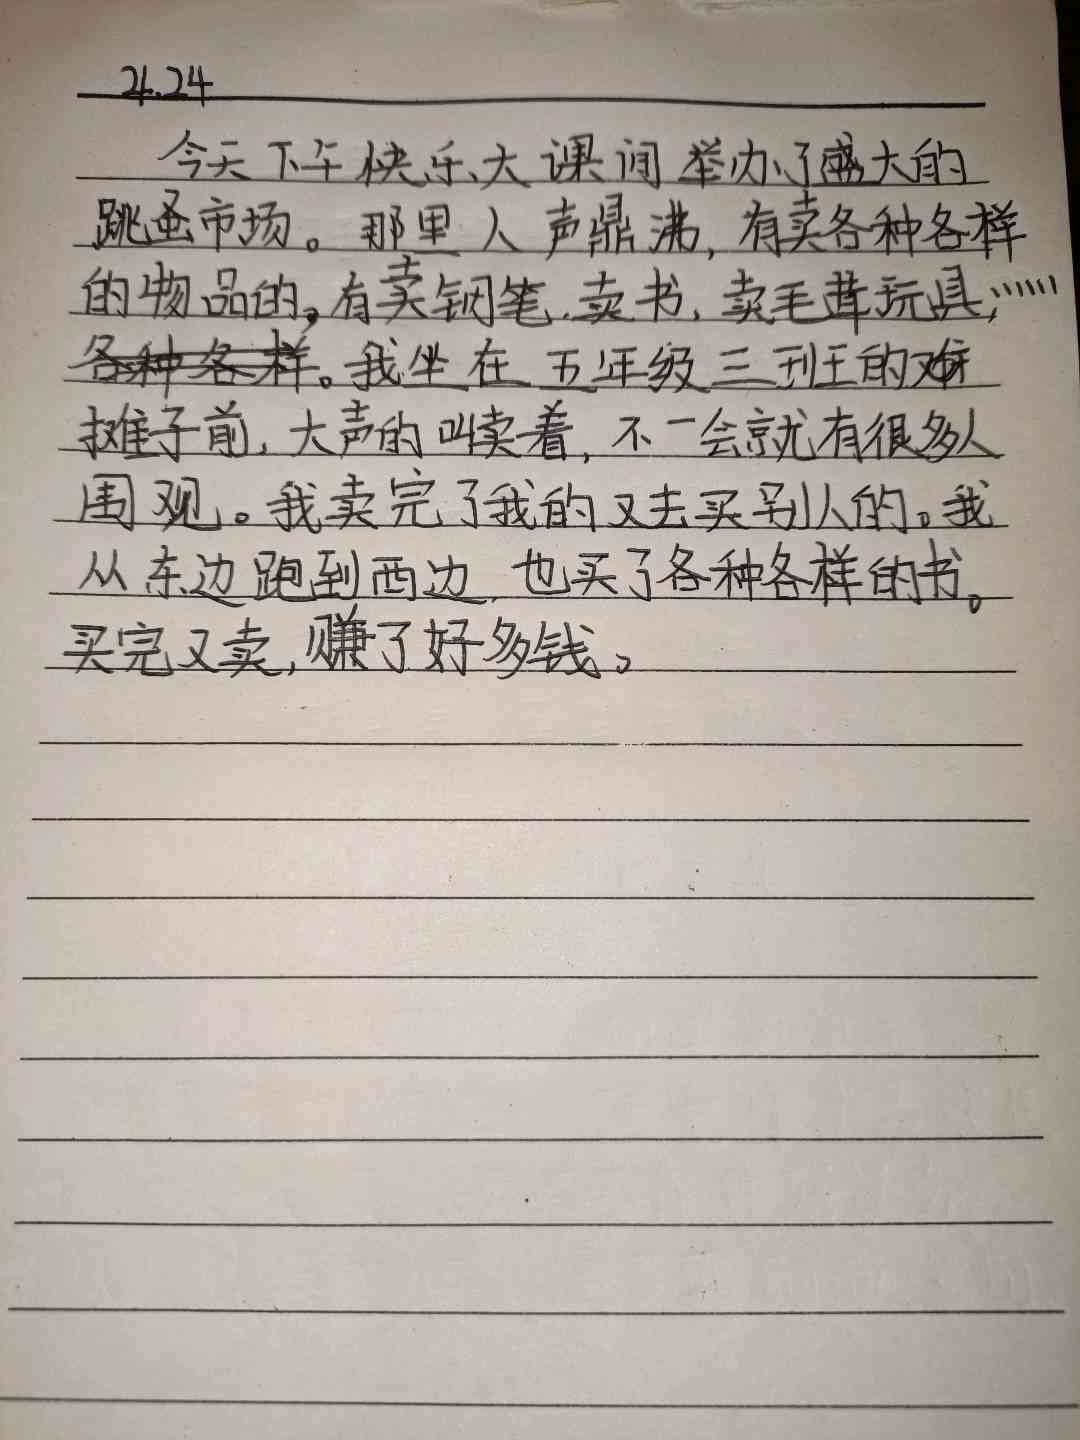 4.24
今天下午快乐大课间举办了盛大的
跳蚤市场。那里人声鼎沸,有卖各种各样
的物品的,有卖钢笔、卖书、卖毛茸玩具,……
我坐在五年级三班的
摊子前,大声的叫卖着,不一会就有很多人
围观。我卖完了我的又去买别人的。我
从东边跑到西边,也买了各种各样的书。
买完又卖,赚了好多钱。